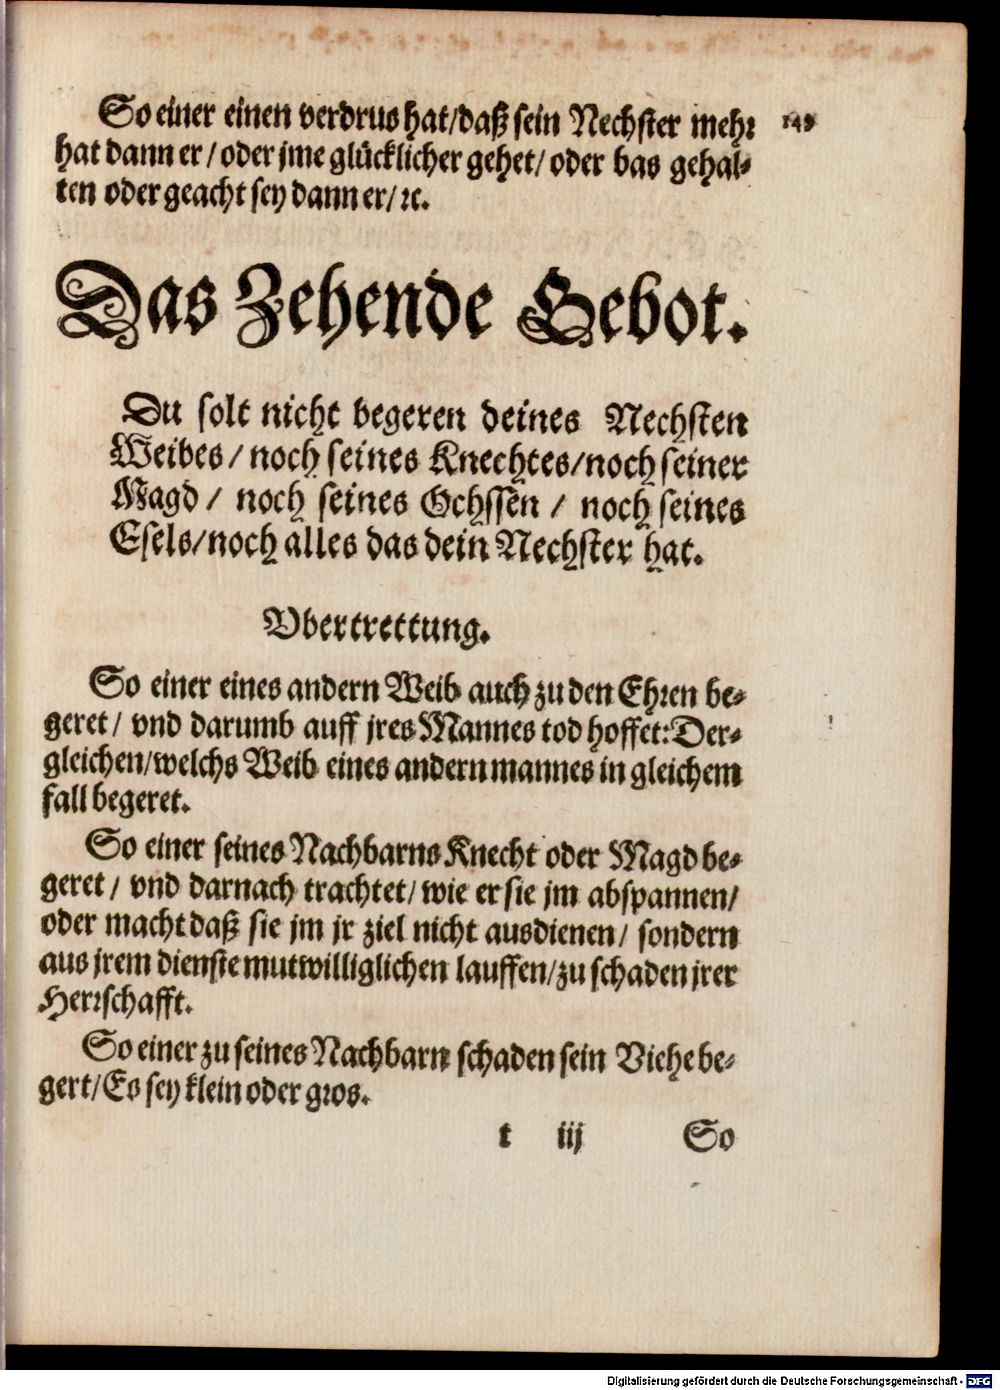 So einer einen verdrus hat/daß sein Nechster mehr
hat dann er/oder jme glücklicher gehet/oder bas gehal-
ten oder geacht sey dann er/ꝛc.
Das Zehende Gebot.
Du solt nicht begeren deines Nechsten
Weibes/noch seines Knechtes/noch seiner
Magd/ noch seines Ochssen/ noch seines
Esels/noch alles das dein Nechster hat.
Vbertrettung.
So einer eines andern Weib auch zu den Ehren be-
geret/ vnd darumb auff jres Mannes tod hoffet: Der-
gleichen/welchs Weib eines andern mannes in gleichem
fall begeret.
So einer seines Nachbarns Knecht oder Magd be-
geret/ vnd darnach trachtet/wie er sie jm abspannen/
oder macht daß sie jm jr ziel nicht ausdienen/ sondern
aus jrem dienste mutwilliglichen lauffen/zu schaden jrer
Herrschafft.
So einer zu seines Nachbarn schaden sein Viehe be-
gert/Es sey klein oder gros.
t iij So
Digitalisierung gefördert durch die Deutsche Forschungsgemeinschaft - DFG